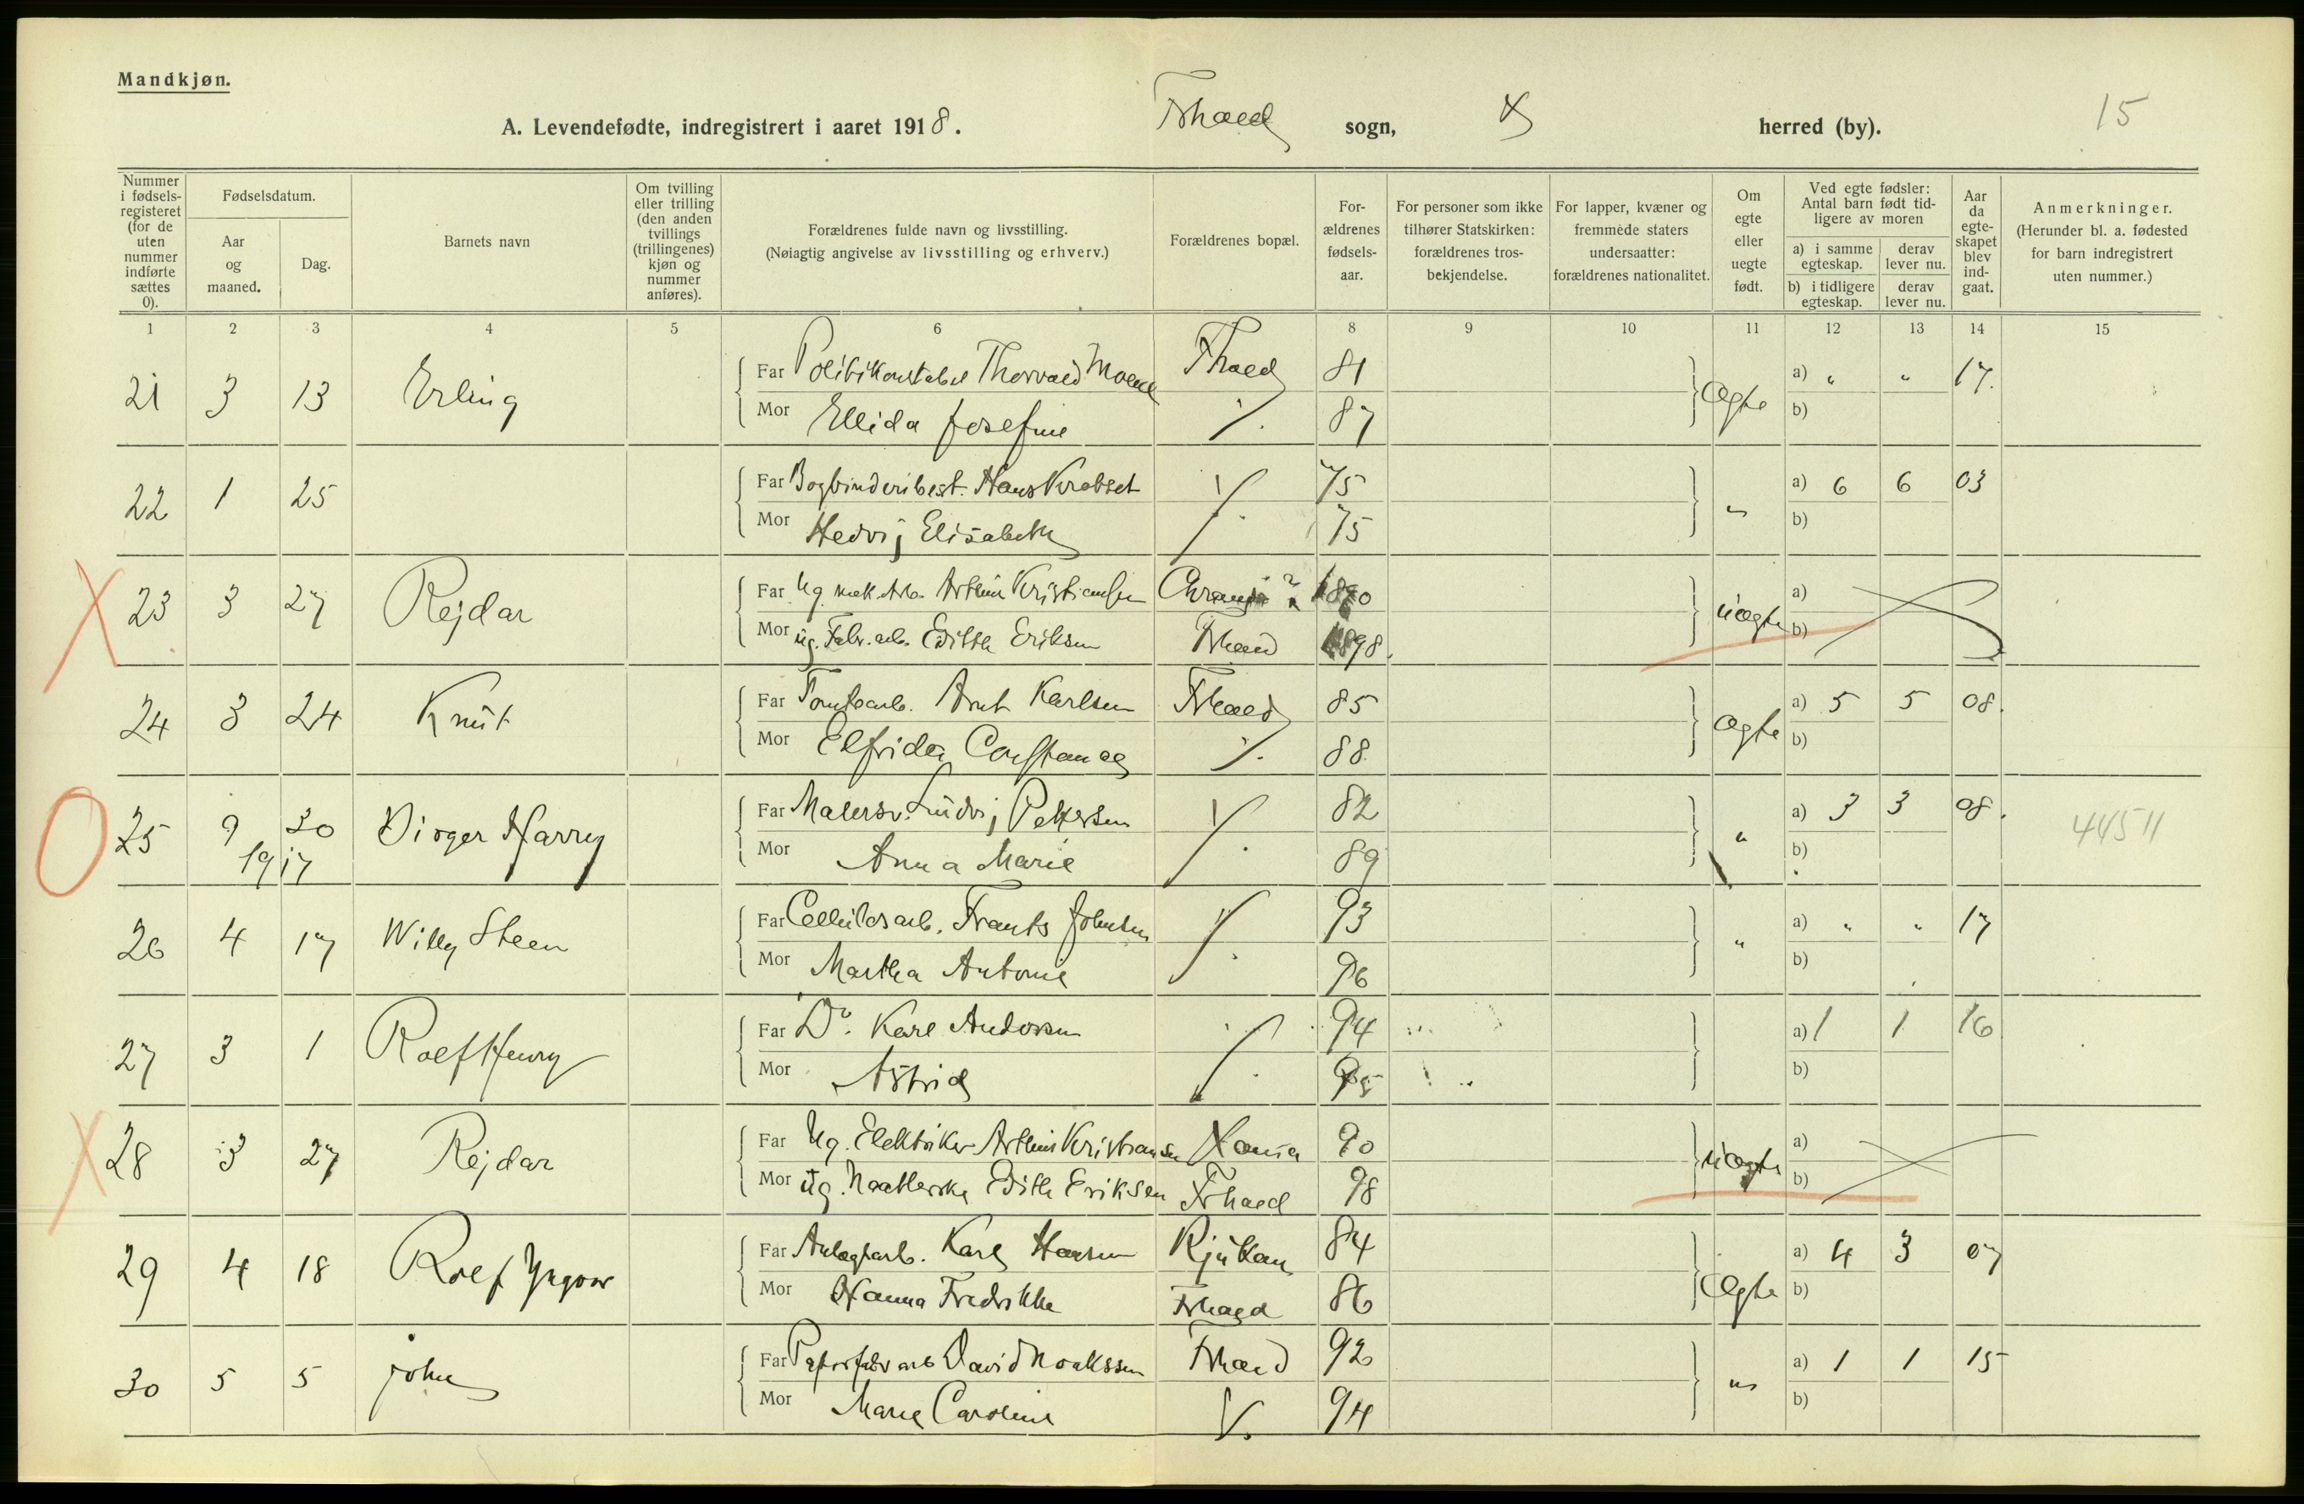 Mandkjøn.
A. Levendefødte, indregistrert i aaret 1918. Frhald sogn, herred (by). 15
Nummer i fødselsregisteret (for de uten nummer indførte sættes 0).
Fødselsdatum.
Aar og maaned.
Dag.
Barnets navn
Om tvilling eller trilling (den anden tvillings (trillingenes) kjøn og nummer anføres).
Forældrenes fulde navn og livsstilling.
(Nøiagtig angivelse av livsstilling og erhverv.)
Forældrenes bopæl.
Forældrenes fødselsaar.
For personer som ikke tilhører Statskirken: forældrenes trosbekjendelse.
For lapper, kvæner og fremmede staters undersaatter: forældrenes nationalitet.
Om egte eller uegte født.
Ved egte fødsler: Antal barn født tidligere av moren
a) i samme egteskap. derav lever nu.
b) i tidligere egteskap. derav lever nu.
Aar da egteskapet blev indgaat.
Anmerkninger.
(Herunder bl. a. fødested for barn indregistrert uten nummer.)
1 2 3 4 5 6 7 8 9 10 11 12 13 14 15
21 3 13 Erling Far Politikonstabel Thorvald Moene Frhald 81 Ægte a) " " 17.
Mor Ellida Josefine 87 b)
22 1 25 Far Bogbinderibest. Hans Krabset 75 " a) 6 6 03
Mor Hedvij Elisabeth 75 b)
23 3 27 Rejdar Far Ug. mek. Arb. Arthur Kristiansen ? 1890 Uægte a)
Mor ug. Fabr. arb. Edith Eriksen Frhald 1898. b)
24 3 24 Knut Far Tomtearb. Arnt Karlsen Frhald 85 Ægte a) 5 5 08.
Mor Elfrida Constance 88 b)
25 9 30 Birger Harry Far Malersv. Ludvij Pettersen 82 " a) 3 3 08. 44511
1917 Mor Anna Marie 89 b)
26 4 17 Willy Steen Far Cellulosarb. Frants Johnsen 93 " a) " " 17
Mor Martha Antonie 96 b)
27 3 1 Rolf Henry Far Do. Karl Andersen 94 a) 1 1 16
Mor Astrid 95 b)
28 3 27 Rejdar Far Ug. Elektriker Arthur Kristiansen Xania 90 Uægte a)
Mor ug. Edith Eriksen Frhald 98 b)
29 4 18 Rolf Yngvar Far Anlægsarb. Karl Hansen Rjukan 84 Ægte a) 4 3 07
Mor Hanna Fredrikke Frhald 86 b)
30 5 5 John Far Papirfabr arb David Noakssen Frhald 92 " a) 1 1 15
Mor Marie Caroline 94 b)